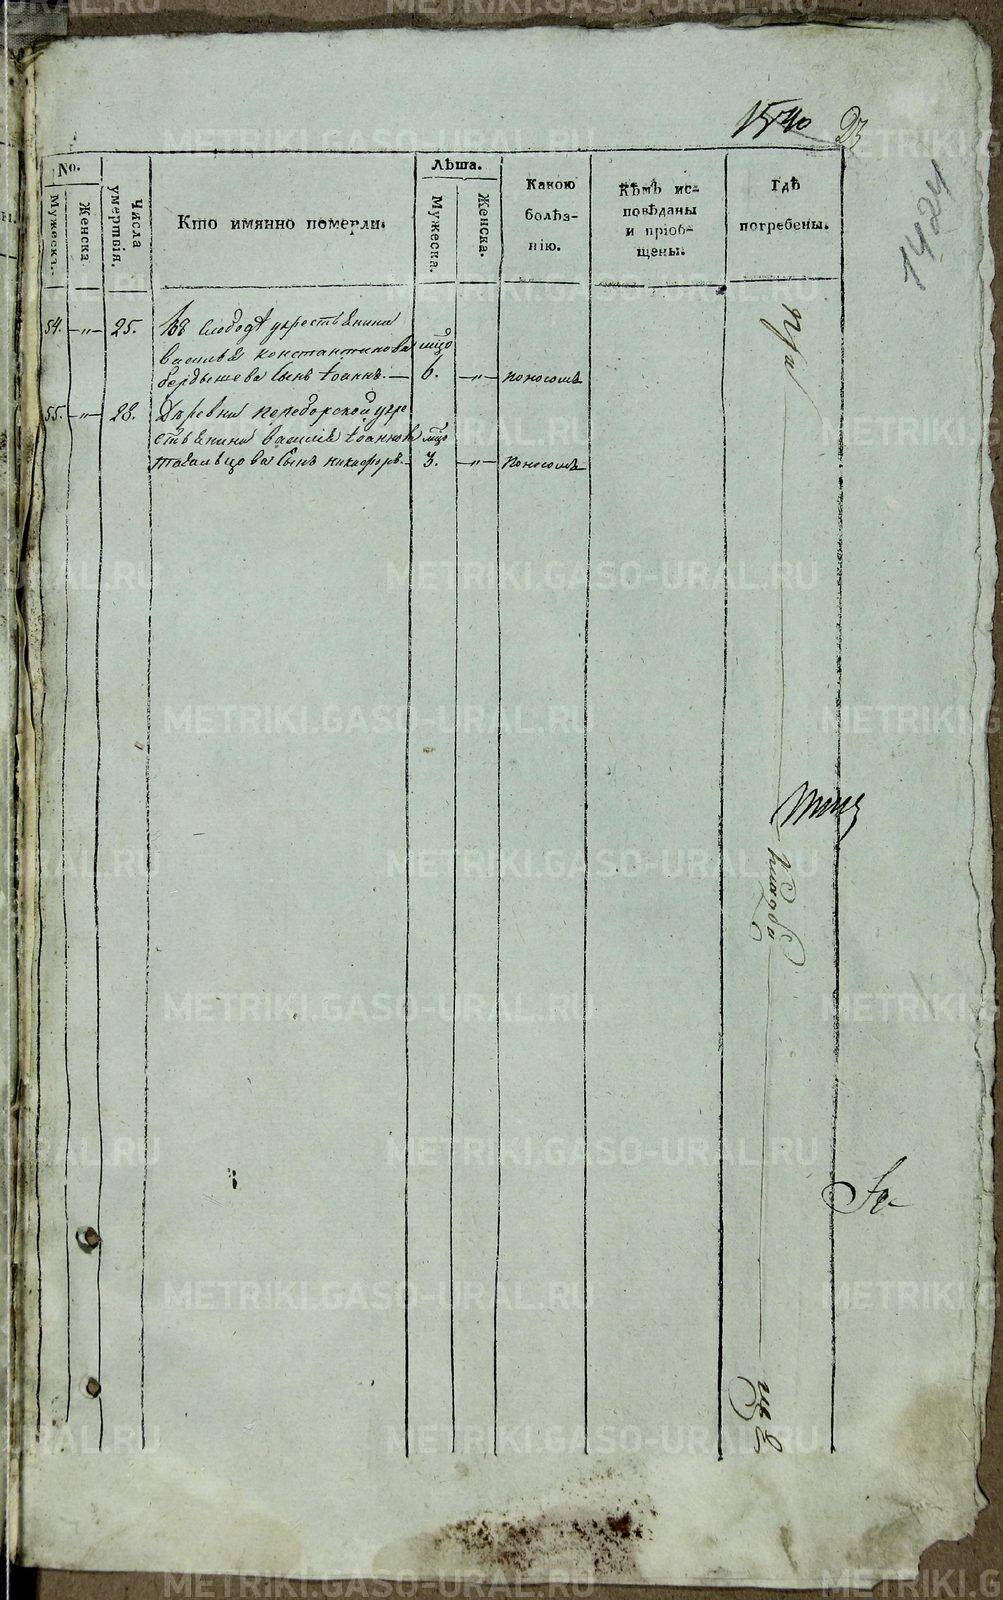 1540
23
1424
No.
Мужескъ.
Женска
Числа умертвія.
Кто имянно померли.
Лѣта.
Мужеска.
Женска.
Какою
болѣз-
нію.
Кѣмъ ис-
повѣданы
и пріоб-
щены.
Гдѣ
погребены.
54. —„— 25. Въ слободѣ у крестьянина
василья константинова мцо
бердышева сынъ Іоаннъ. — 6. —„— поносомъ
55. —„— 28. Деревни
крестьянина василія Іоаннова мцо
сынъ никифоръ. — 3. —„— поносомъ
METRIKI.GASO-URAL.RU